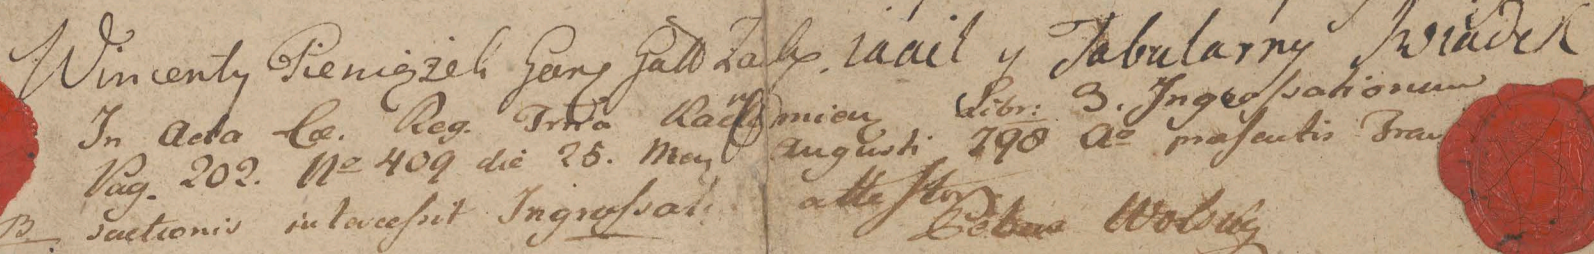 Wincenty Pieniążek Gens Gall Zach. iaail y Tabularny Swiadek
In Acta Cæ. Reg. Trria Radomien Libr: 3. Ingrossationum
Pag. 202. No 409 die 25. Men Augusti 798 Ao præsentis Tran
sactionis intercessit Ingrossatio attestor
Wolsky